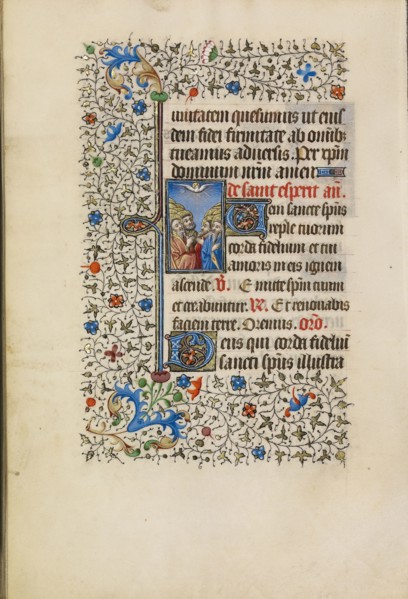 unitatem quesumus ut eius
dem fidei firmitate ab omnib
tueamur adversis. Per xpm
dominum nrm amen
de saint esperit añ.
Veni sancte spūs
reple tuorum
corda fidelium et tui
amoris in eis ignem
ascende. V. Emitte spm tuum
et creabuntur. R. Et renovabis
faciem terre. Oremus. oro.
Deus qui corda fidelium
sancti spūs illustra